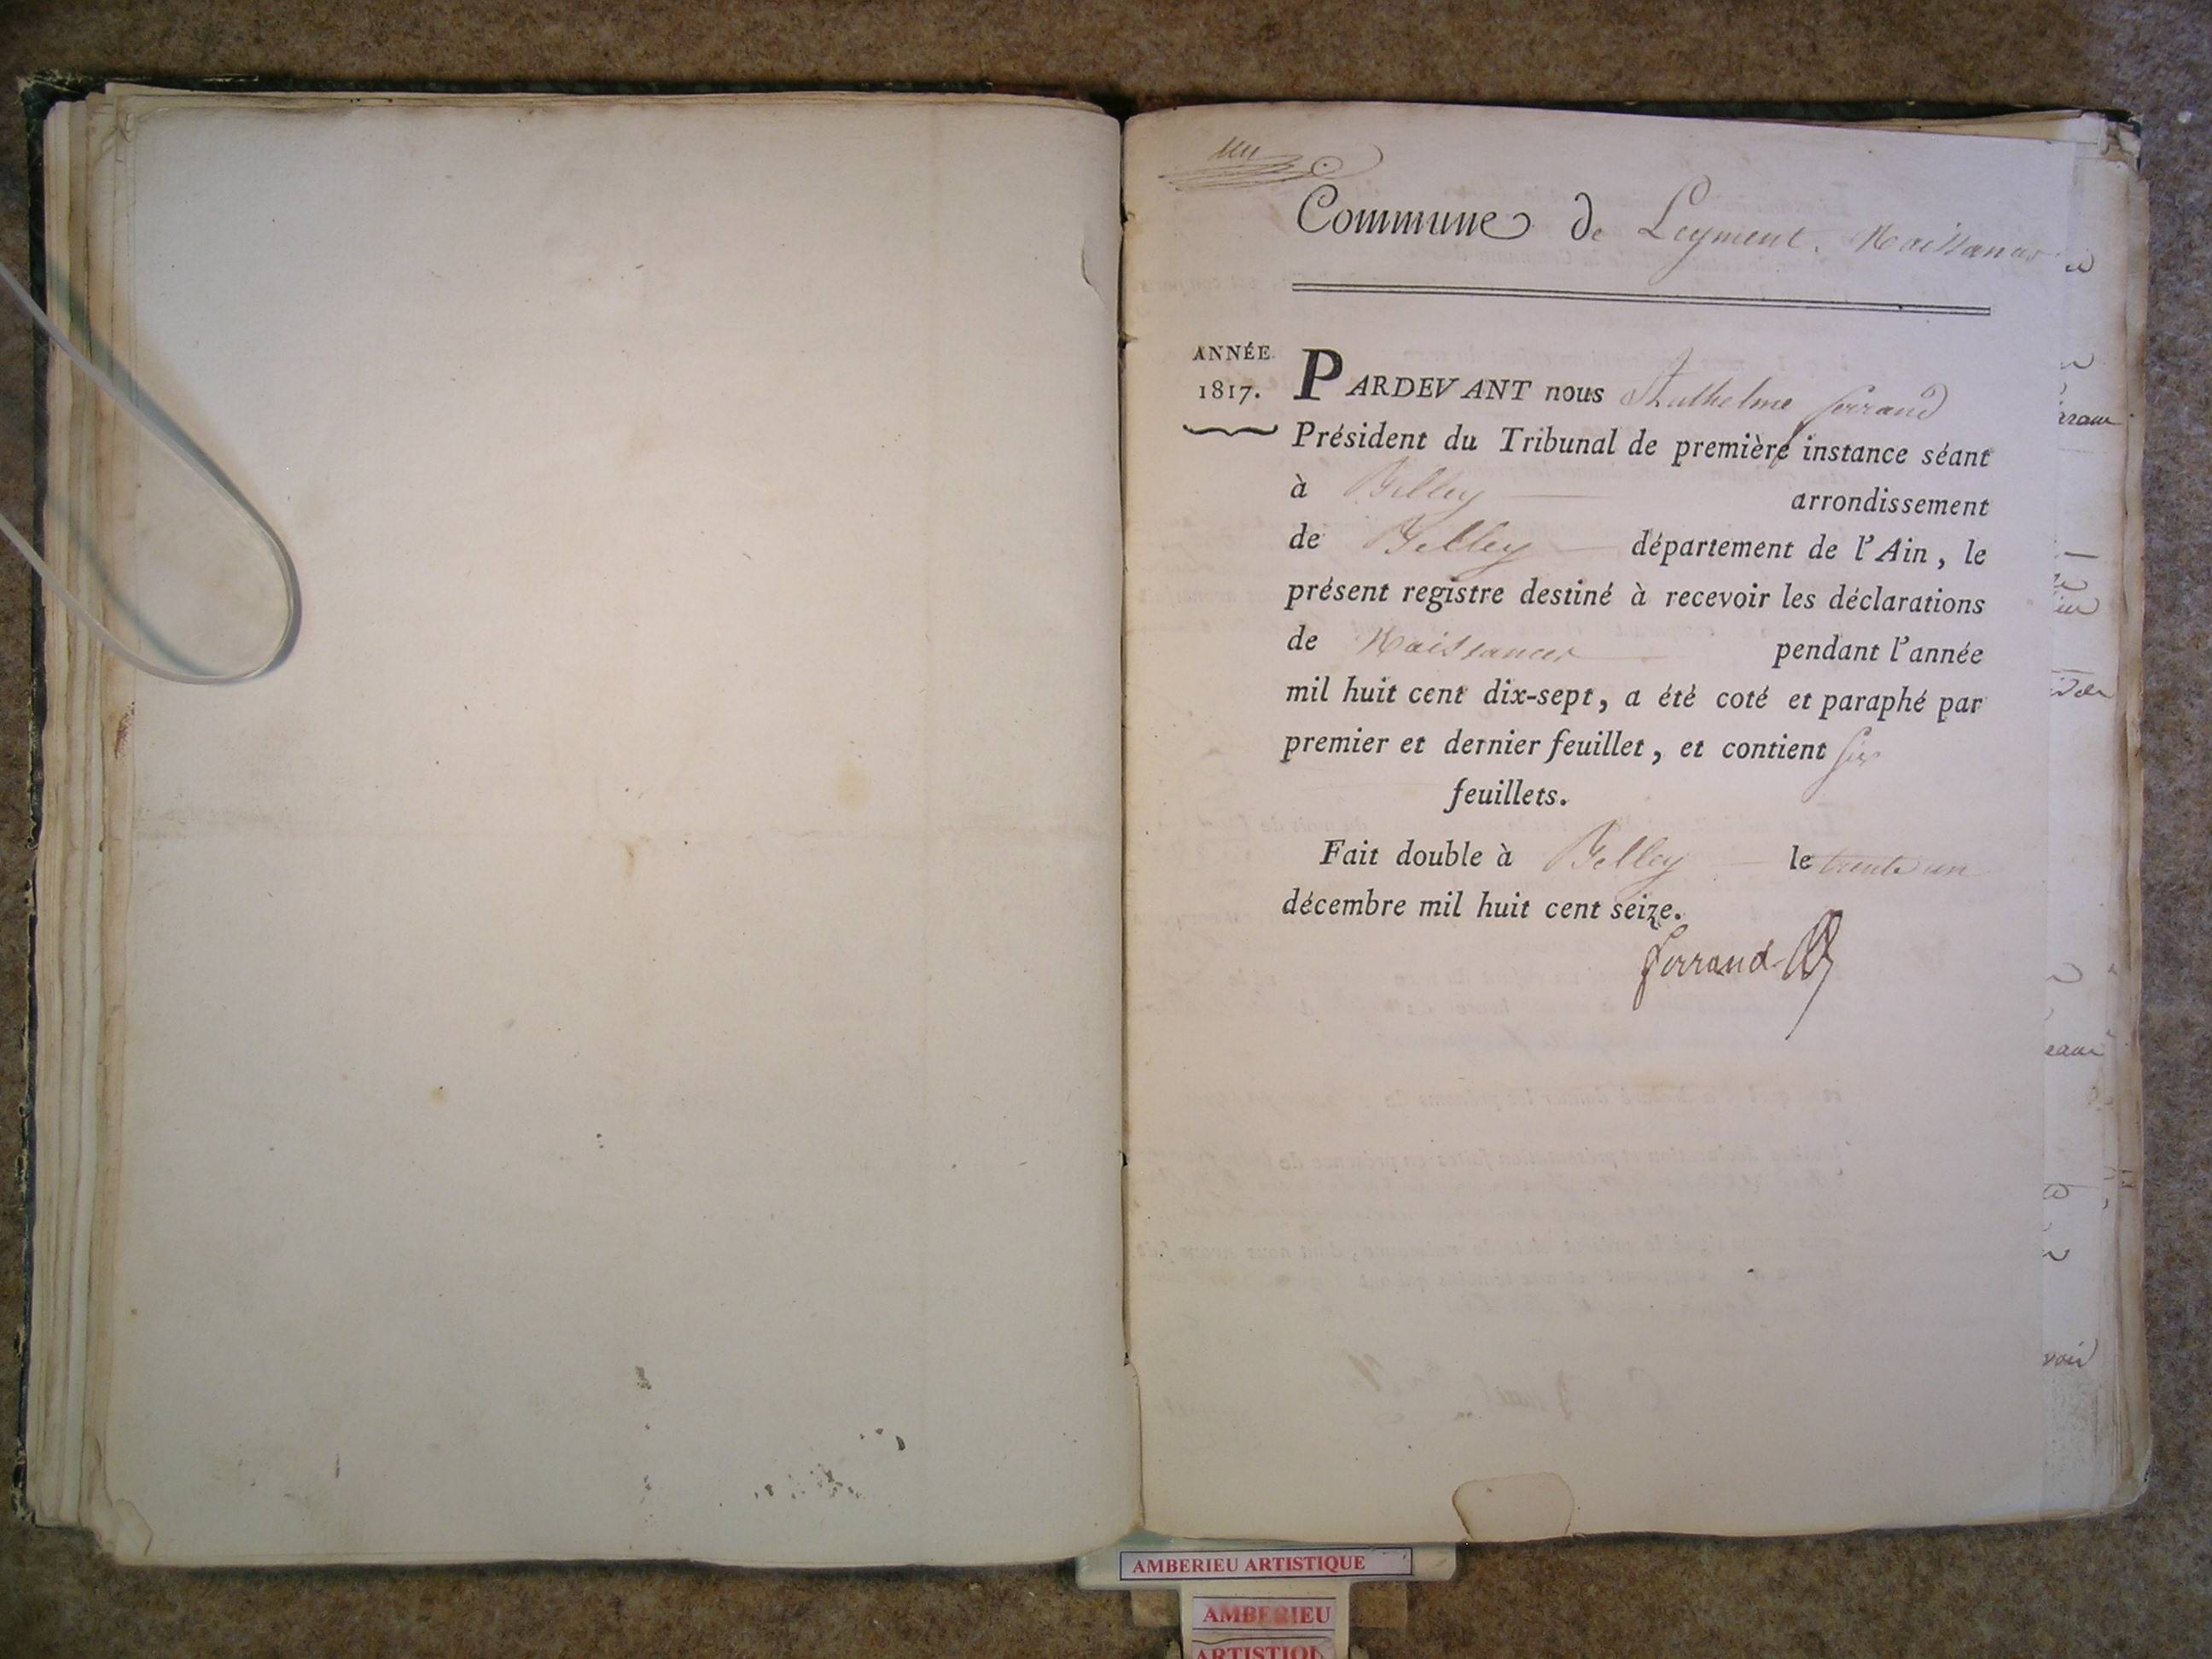 un
Commune de Leyment. Naissances
ANNÉE
1817.
PARDEVANT nous Anthelme ferrand
Président du Tribunal de première instance séant
à Belley arrondissement
de Belley département de l'Ain, le
présent registre destiné à recevoir les déclarations
de Naissances pendant l'année
mil huit cent dix-sept, a été coté et paraphé par
premier et dernier feuillet, et contient six
feuillets.
Fait double à Belley le trente un
décembre mil huit cent seize.
ferrand
AMBERIEU ARTISTIQUE
AMBERIEU